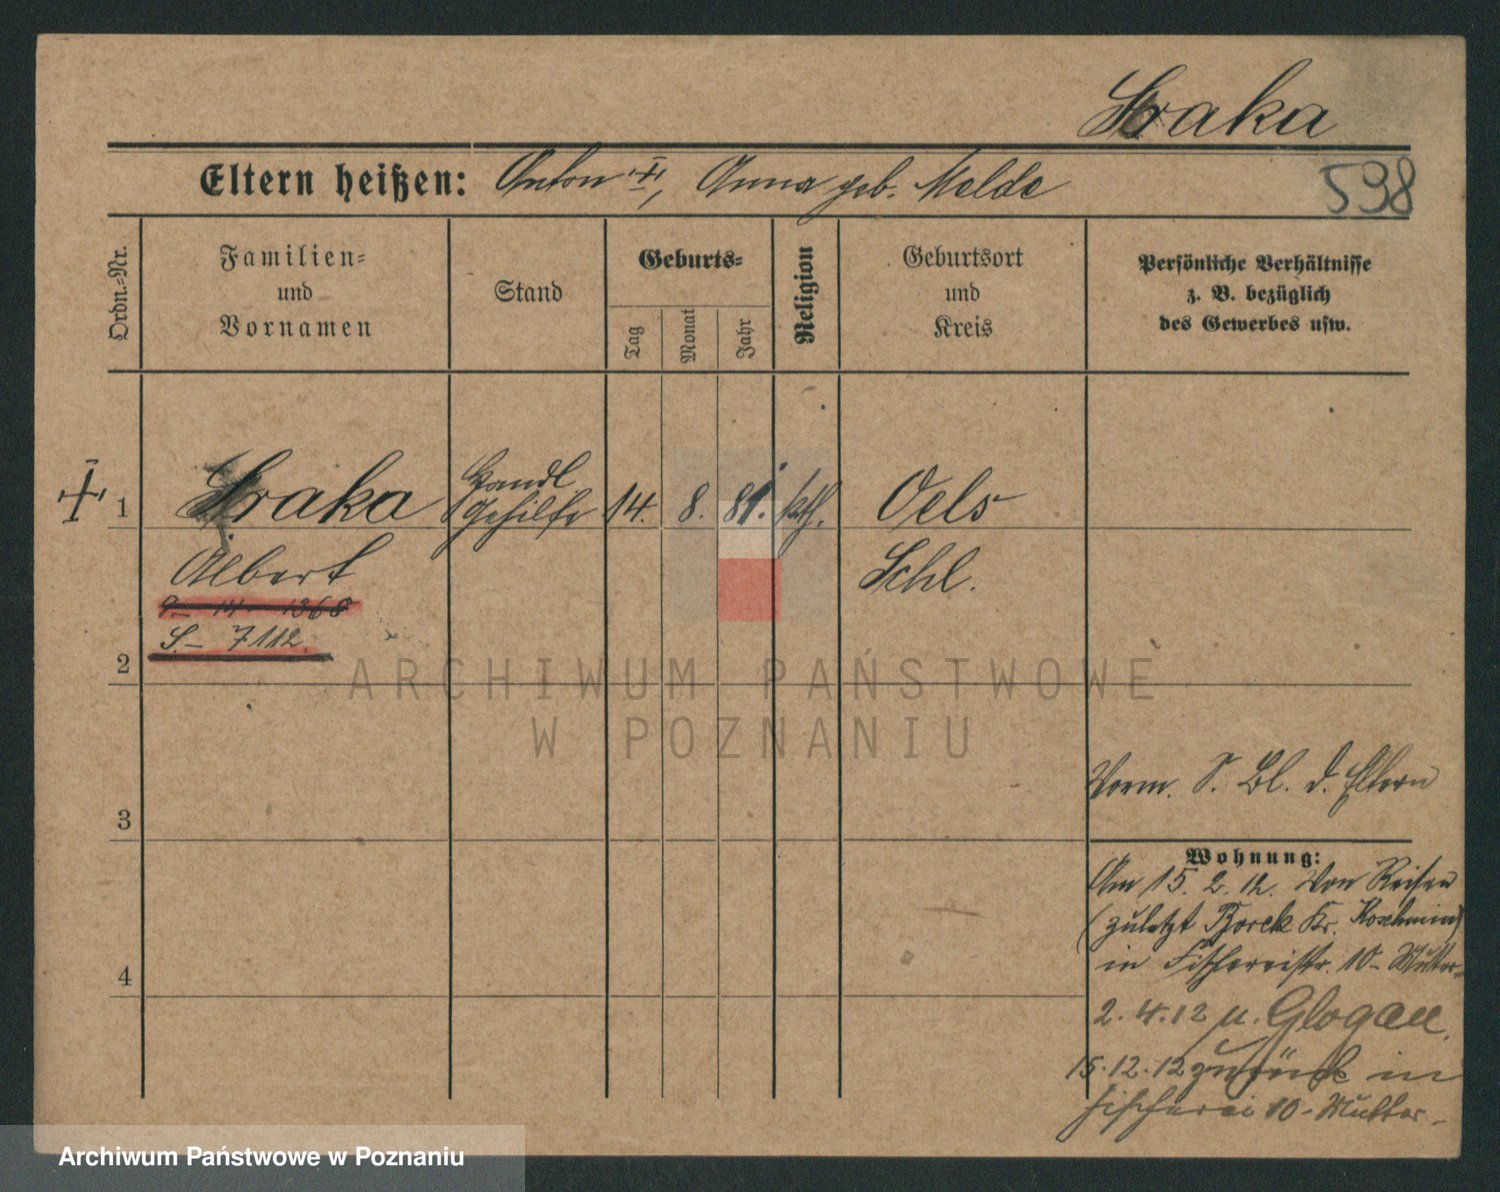 Sraka
Eltern heißen: Anton +, Anna geb. Melde
598
Ordn.-Nr.
Familien-
und
Vornamen
Stand
Geburts-
Tag
Monat
Jahr
Religion
Geburtsort
und
Kreis
Persönliche Verhältnisse
z. B. bezüglich
des Gewerbes usw.
+ 1 Sraka Handl. Gehilfe 14. 8. 81. kath. Oels
Albert Schl.
9- 14- 1368
S- 7112.
2
ARCHIWUM PAŃSTWOWE
W POZNANIU
Vorm. S. Bl. d. Eltern
3
Wohnung:
Am 15. 2. 12. von Reisen
(zuletzt Borek Kr. Koschmin)
4
in Fischereistr. 10- Mutter-
2. 4. 12 n. Glogau.
15. 12. 12 zurück in
Fischerei 10- Mutter-
Archiwum Państwowe w Poznaniu